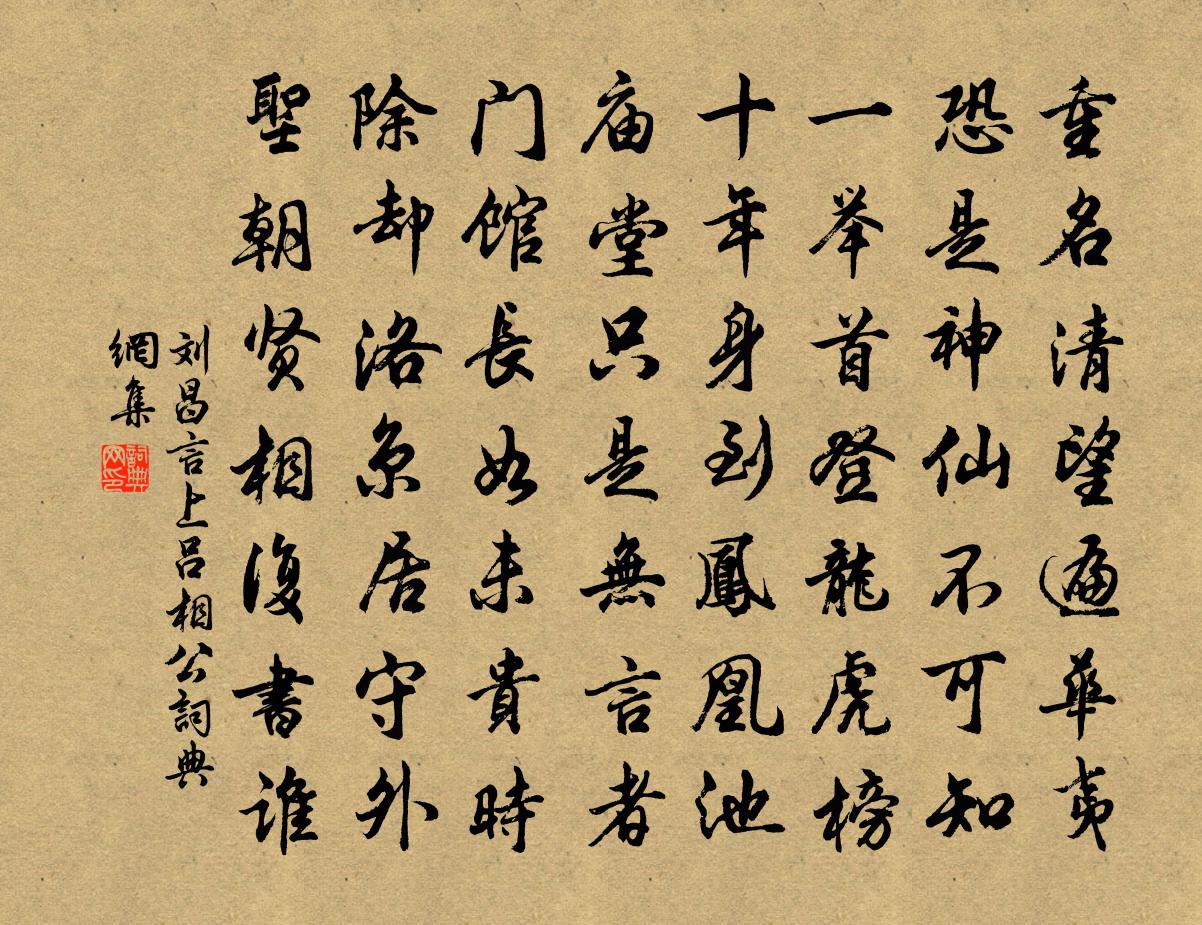 重名清望遍华夷
恐是神仙不可知
一举首登龍虎榜
十年身到鳳凰池
庙堂只是無言者
门馆長如未貴時
除却洛京居守外
聖朝贤相復書谁
刘昌言上吕相公詞典
網集
詞典
网印